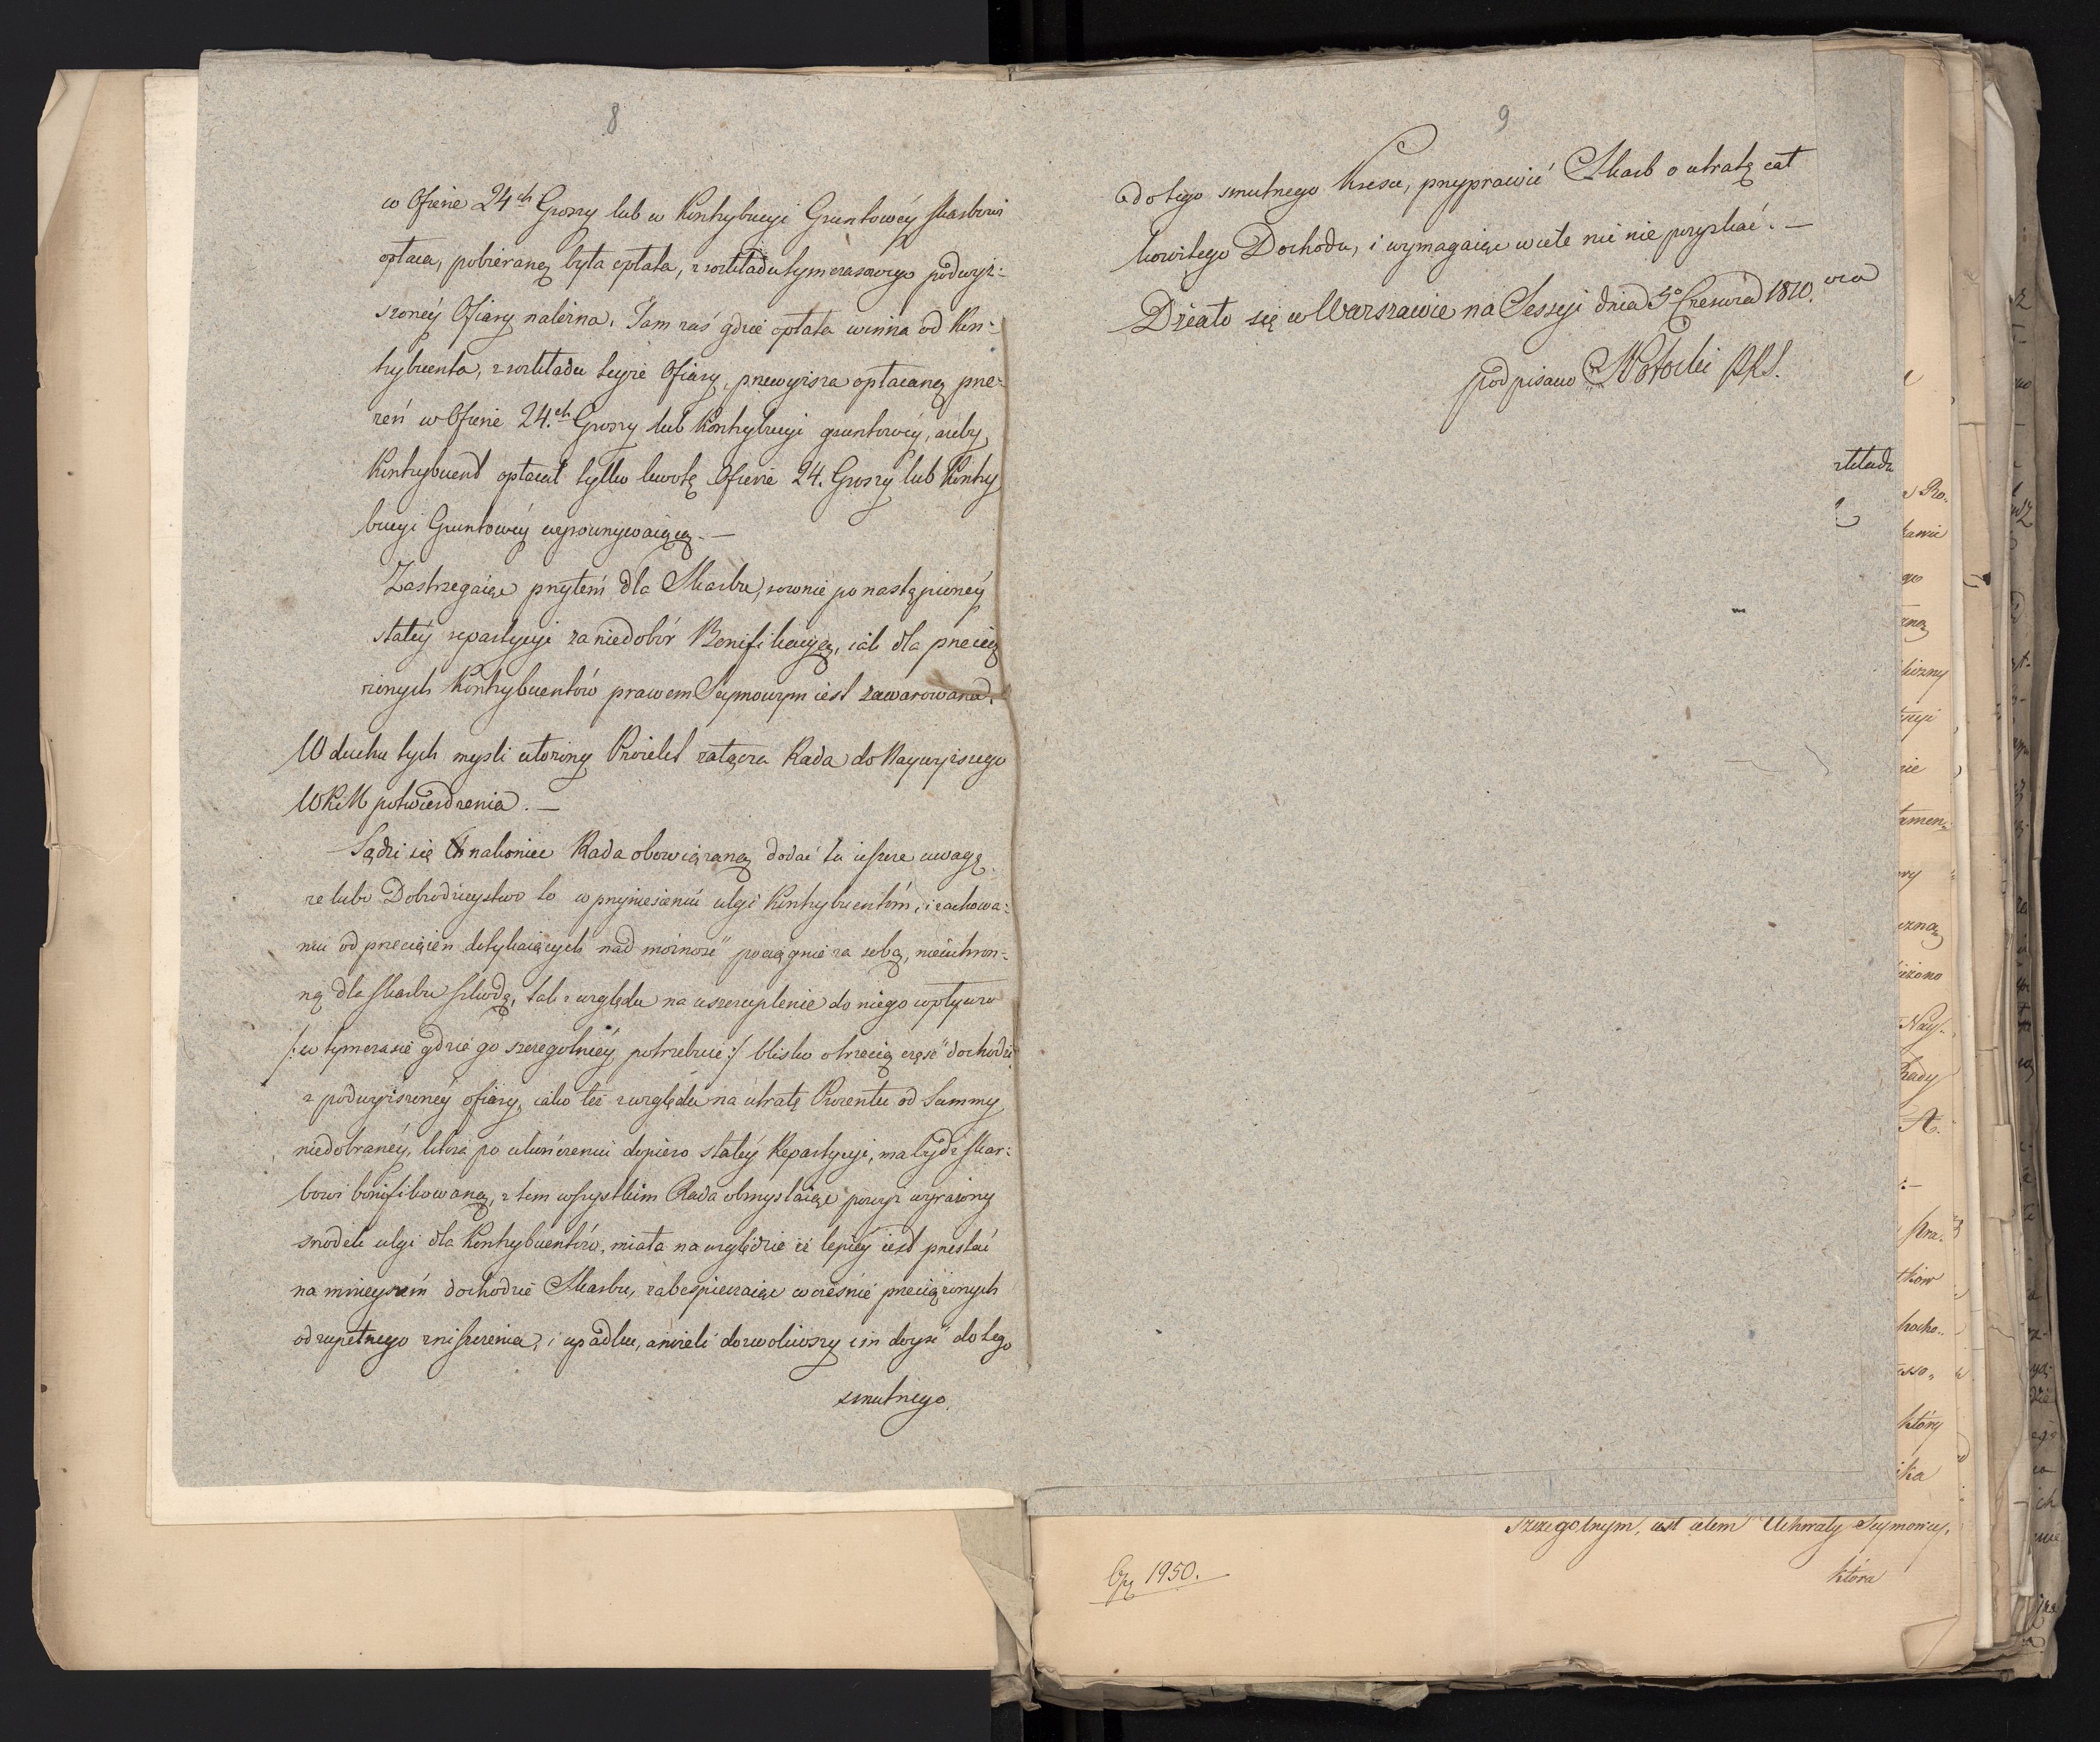 8
w Ofierze 24ch Groszy lub w Kontrybucyi Gruntowéy skarbowi
opłaca, pobieraną była opłata, z rozkładu tymczasowego podwyż:
szonéy Ofiary należna. Tam zaś gdzie opłata winna od Kon:
trybuenta, z rozkładu teyże Ofiary, przewyższa opłacaną prze:
zeń w Ofierze 24.ch Groszy lub Kontrybucyi gruntowéy, ażeby
Kontrybuent opłacał tylko kwotę Ofierze 24. Groszy lub Kontry
bucyi Gruntowéy wyrownywaiącą. —
Zastrzegaiąc przytém dla Skarbu, rownie po nastąpionéy
stałéy repartycyi za niedobór Bonifikacyą, iak dla przecią
żonych Kontrybuentów prawem Seymowym iest zawarowana.
W duchu tych mysli utożony Proiekt załącza Rada do Naywyższego
WKM potwierdzenia. —
Sądzi się nakoniec Rada obowiązaną dodać tu ieszcze uwagę
że lubo Dobrodzieystwo to w przyniesieniu ulgi Kontrybuentóm, i zachowa:
niu od przeciążeń dotykaiących nad możnosć pociągnie za sobą, nieuchron:
ną dla skarbu szkodę, tak z względu na uszczuplenie do niego wpływu
/: w tymczasie gdzie go szczegolniéy potrzebuie :/ blisko o trzecią częsć dochodu
z podwyższonéy ofiary, iako też z względu na utratę Procentu od Summy
niedobranéy, która po utworzeniu dopiero stałéy Repartycyi, ma bydź skar:
bowi bonifikowaną, z tem wszystkim Rada obmyslaiąc powyż wyrażony
srodek ulgi dla Kontrybuentów, miała na względzie iż lepiéy iest przestać
na mnieyszém dochodzie Skarbu, zabespieczaiąc wcześnie przeciążonych
od zupełnego zniszczenia, i upadku, aniżeli dozwoliwszy im doysć do tego
smutnego
9
do tego smutnego Kresu, przyprawić Skarb o utratę cał
kowitego Dochodu, i wymagaiąc wiele nic nie pozyskać. —
Działo się w Warszawie na Sessyi dnia 5o Czerwca 1810.
podpisano S Potocki P.R.S.
Szczegolnym, iest celem Uchwały Seymowey,
która
1950.